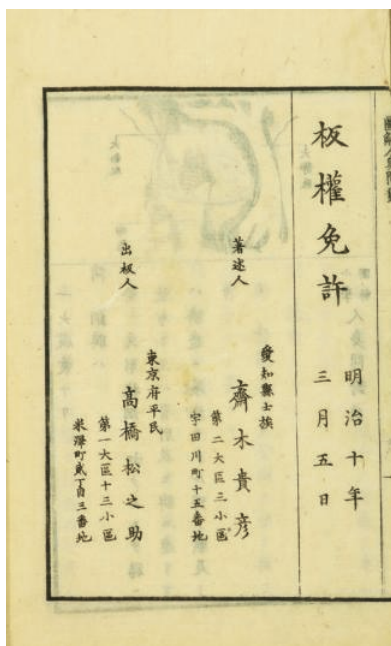 板權免許
明治十年
三月五日
著述人
愛知縣士族
齊木貴彦
第二大區三小區
宇田川町十五番地
出板人
東京府平民
高橋松之助
第一大區十三小區
米澤町貳丁目三番地